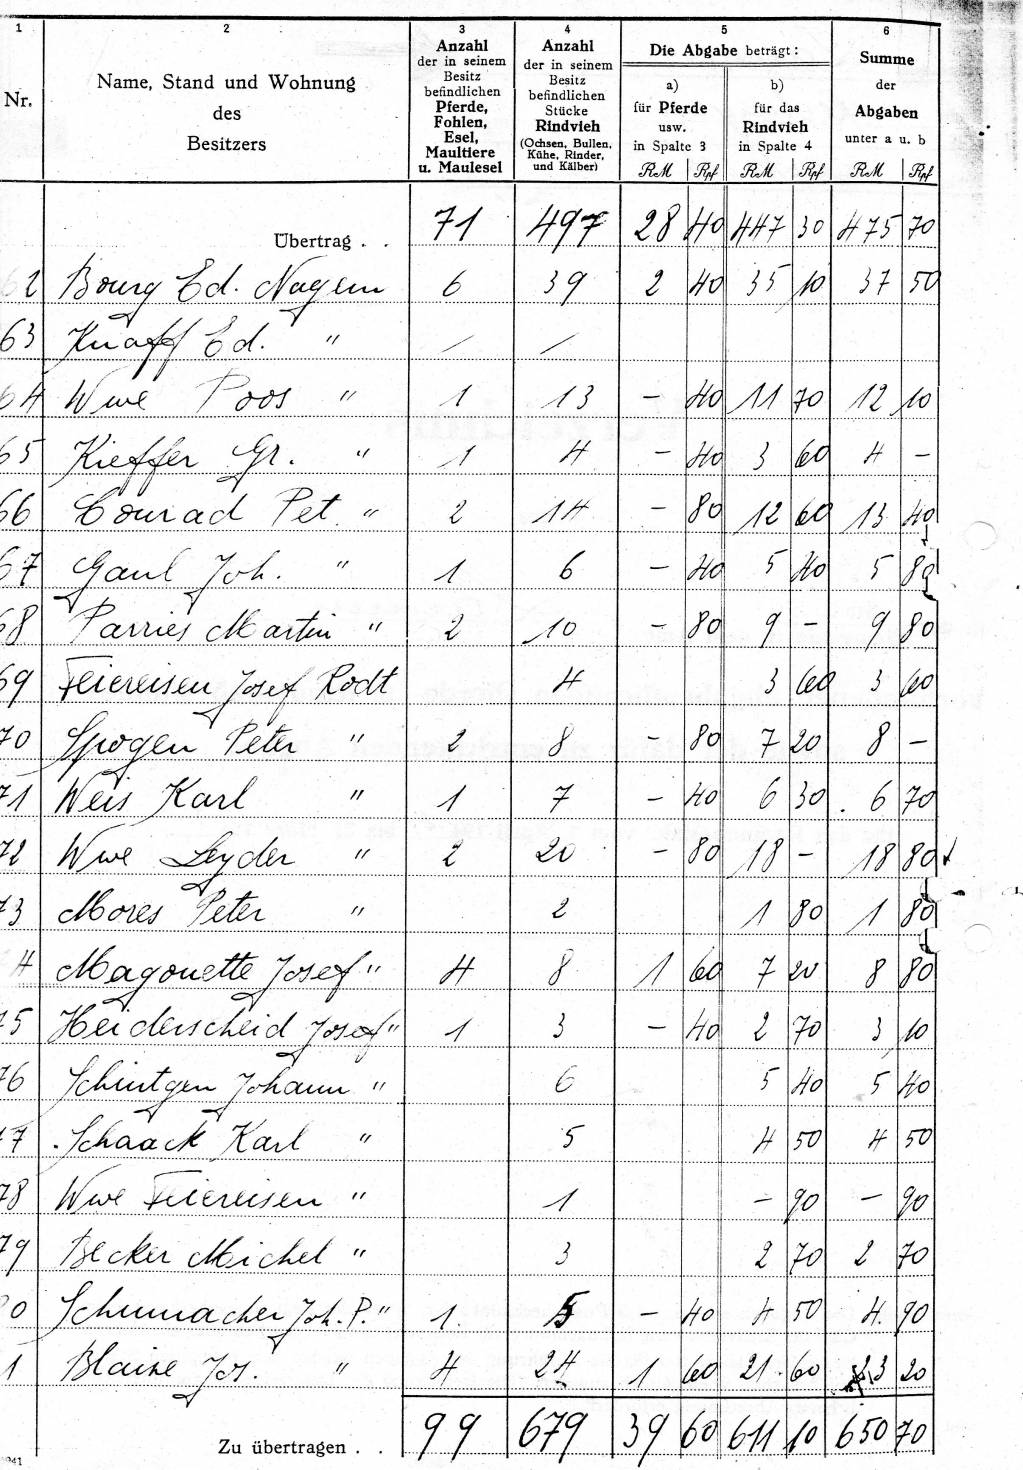 1 2 3 4 5 6
Nr. Name, Stand und Wohnung des Besitzers Anzahl der in seinem Besitz befindlichen Pferde, Fohlen, Esel, Maultiere u. Maulesel Anzahl der in seinem Besitz befindlichen Stücke Rindvieh (Ochsen, Bullen, Kühe, Rinder, und Kälber) Die Abgabe beträgt: a) für Pferde usw. in Spalte 3 b) für das Rindvieh in Spalte 4 Summe der Abgaben unter a u. b
RM Rpf RM Rpf RM Rpf
Übertrag . . 71 497 28 40 447 30 475 70
62 Bourg Ed. Nagem 6 39 2 40 35 10 37 50
63 Knaff Ed. " / /
64 Wwe Poos " 1 13 – 40 11 70 12 10
65 Kieffer Gr. " 1 4 – 40 3 60 4 –
66 Conrad Pet. " 2 14 – 80 12 60 13 40
67 Gaul Joh. " 1 6 – 40 5 40 5 80
68 Parries Martin " 2 10 – 80 9 – 9 80
69 Feiereisen Josef Rodt 4 3 60 3 60
70 Spogen Peter " 2 8 – 80 7 20 8 –
71 Weis Karl " 1 7 – 40 6 30 6 70
72 Wwe Leyder " 2 20 – 80 18 – 18 80
73 Mores Peter " 2 1 80 1 80
4 Magonette Josef " 4 8 1 60 7 20 8 80
75 Heiderscheid Josef " 1 3 – 40 2 70 3 10
76 Schintgen Johann " 6 5 40 5 40
77 Schaack Karl " 5 4 50 4 50
78 Wwe Feiereisen " 1 – 90 – 90
79 Becker Michel " 3 2 70 2 70
80 Schumacher Joh. P. " 1. 5 – 40 4 50 4. 90
1 Blaise Jos. " 4 24 1 60 21 60 23 20
Zu übertragen . . 99 679 39 60 611 10 650 70
1941